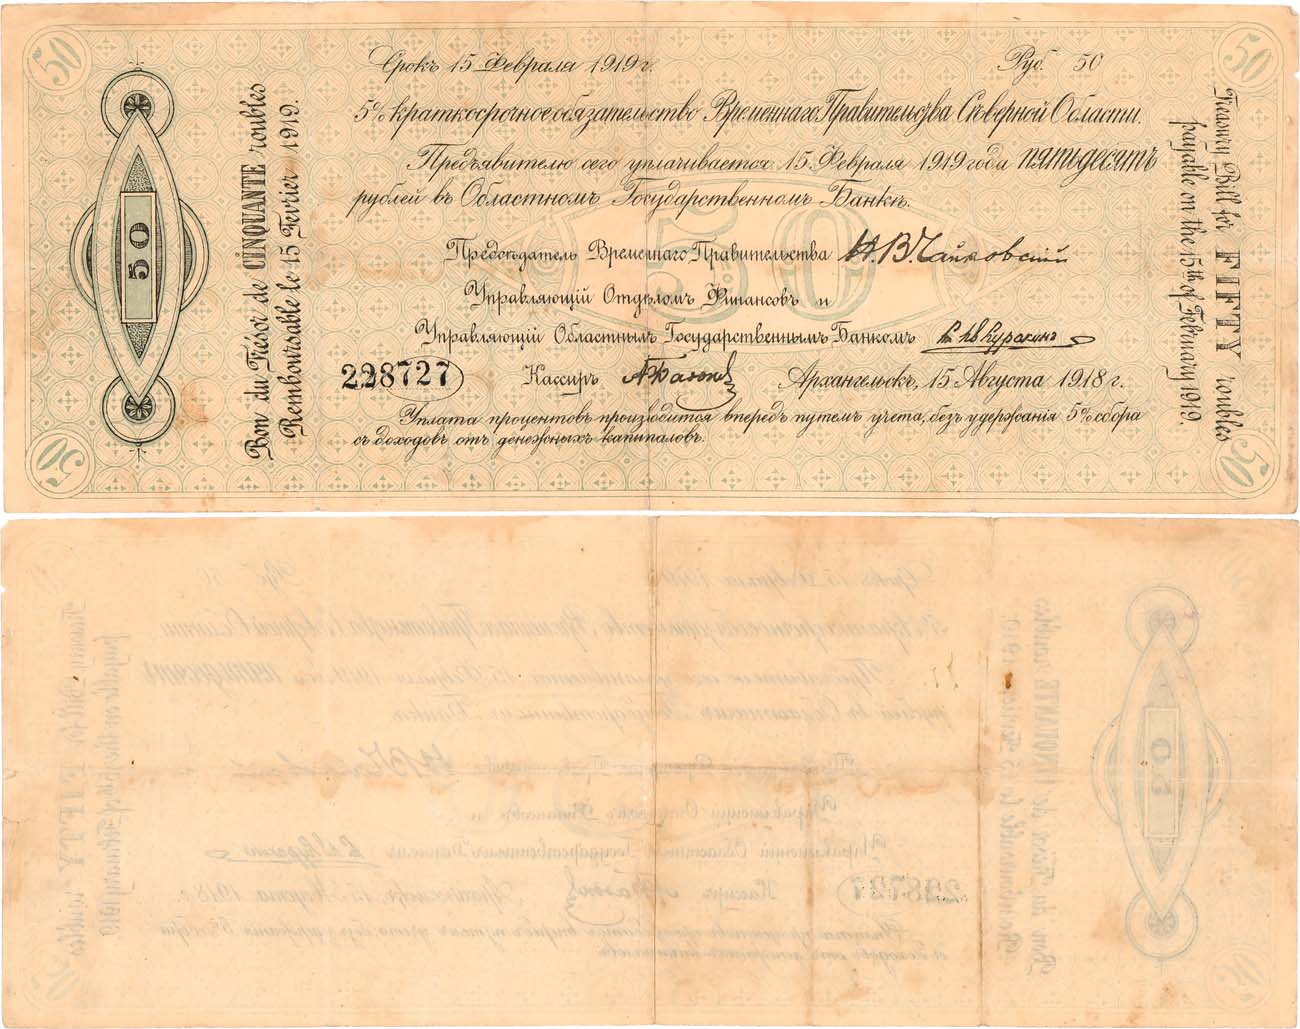 50
50
Срокъ 15 Февраля 1919 г.
Руб. 50
5% краткосрочное обязательство Временнаго Правительства Съверной Области.
Предъявителю сего уплачивается 15 Февраля 1919 года пятьдесятъ
рублей въ Областномъ Государственномъ Банкъ.
50
Предсѣдатель Временнаго Правительства Н. В. Чайковскій
Управляющій Отдѣломъ Финансовъ и
Управляющій Областнымъ Государственнымъ Банкомъ
228727
Кассиръ
Архангельскъ, 15 Августа 1918 г.
Уплата процентовъ производится впередъ путемъ учета, безъ удержанія 5% сбора
съ доходовъ отъ денежныхъ капиталовъ.
50
Bon du Trésor de CINQUANTE roubles
Remboursable le 15 Fevrier 1919.
Treasury Bill for FIFTY roubles
payable on the 15th of February 1919.
50
50